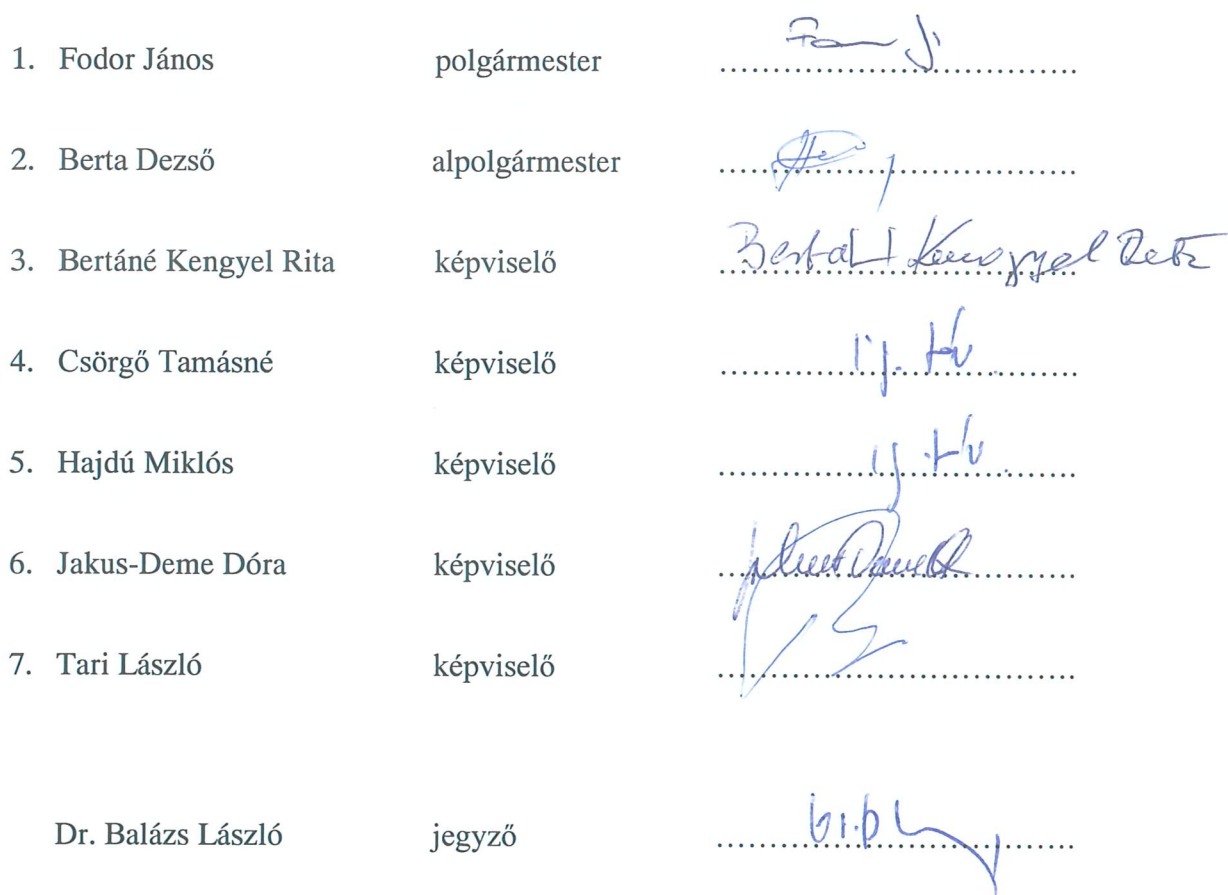 1. Fodor János polgármester
2. Berta Dezső alpolgármester
3. Bertáné Kengyel Rita képviselő Bertáné Kengyel Rita
4. Csörgő Tamásné képviselő ig. táv.
5. Hajdú Miklós képviselő ig. táv.
6. Jakus-Deme Dóra képviselő
7. Tari László képviselő
Dr. Balázs László jegyző